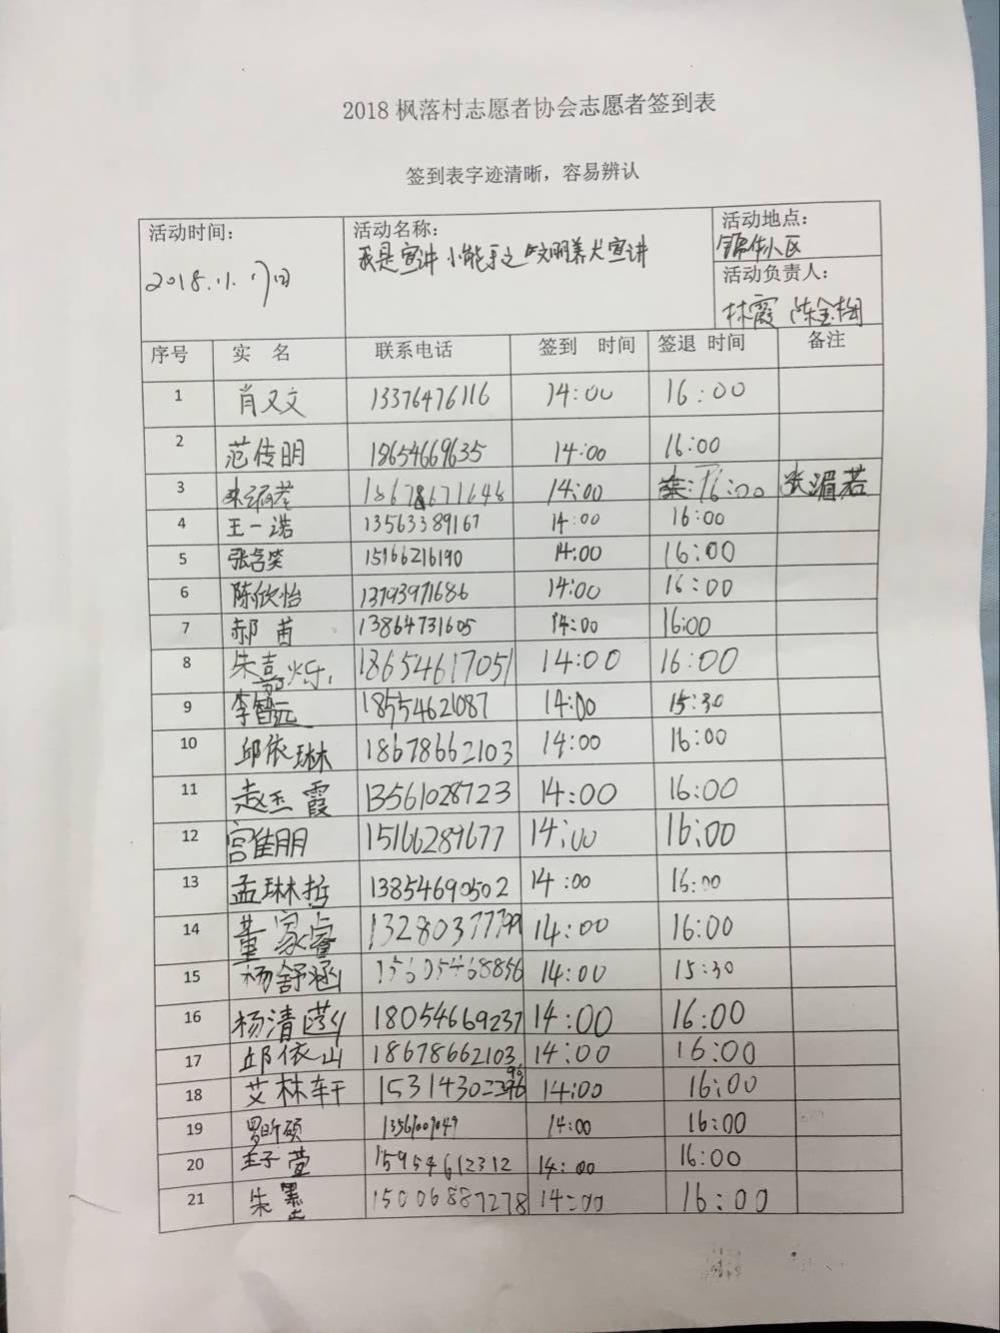 2018 枫落村志愿者协会志愿者签到表
签到表字迹清晰，容易辨认
活动时间：
2018.11.17日
活动名称：
我是宣讲小能手之"文明养犬宣讲
活动地点：
锦华小区
活动负责人：
林霞 陈金梅
序号 实 名 联系电话 签到 时间 签退 时间 备注
1 肖又文 13376476116 14:00 16:00
2 范传明 18654669635 14:00 16:00
3 18678671648 14:00 16:00 张湄若
4 王一诺 13563389167 14:00 16:00
5 张含笑 15166216190 14:00 16:00
6 陈欣怡 13793971686 14:00 16:00
7 郝茜 13864731605 14:00 16:00
8 朱嘉烁 18654617051 14:00 16:00
9 李智远 18554621087 14:00 15:30
10 邱依琳 18678662103 14:00 16:00
11 赵玉霞 13561028723 14:00 16:00
12 宫隹朋 15166289677 14:00 16:00
13 孟琳哲 13854690502 14:00 16:00
14 董家睿 14:00 16:00
15 杨舒涵 14:00 15:30
16 杨清 18054669237 14:00 16:00
17 邱依山 18678662103 14:00 16:00
18 艾林轩 14:00 16:00
19 罗昕硕 14:00 16:00
20 王子萱 15954612312 14:00 16:00
21 朱墨 15006887278 14:00 16:00